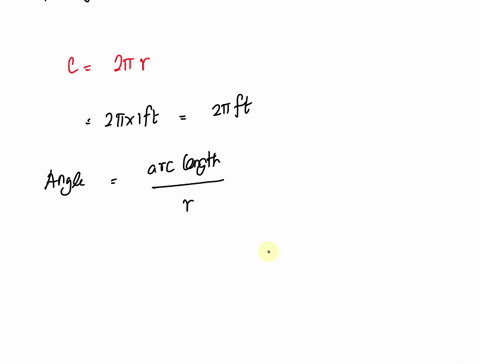 C = 2π r
= 2π×1ft = 2π ft
Angle = arc length / r